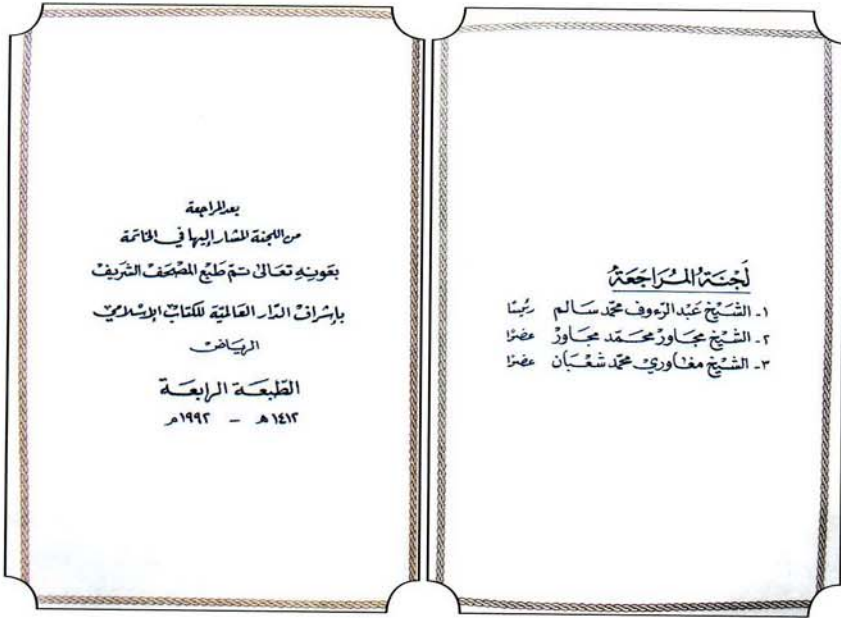 لَجْنَة المُراجَعَة
١- الشيخ عبد الرءوف محمد سالم رئيسًا
٢- الشيخ مجاور محمد مجاور عضوًا
٣- الشيخ مغاوري محمد شعبان عضوًا
بعد المراجعة
من اللجنة المشار إليها في الخاتمة
بعونه تعالى تم طبع المصحف الشريف
بإشراف الدار العالمية للكتاب الإسلامي
الرياض
الطبعة الرابعة
١٤١٢ هـ – ١٩٩٢ م